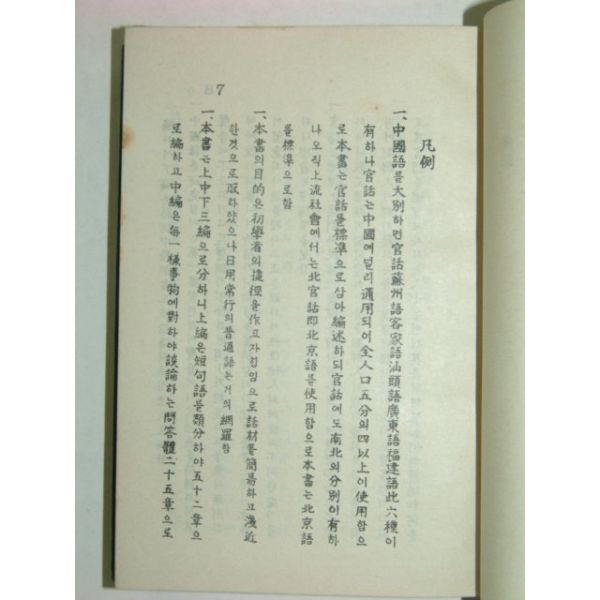 7
凡例
一、中國語를大別하면官話蘇州語客家語汕頭語廣東語福建語此六種이
有하나官話는中國에널리通用되어全人口五分의四以上이使用함으
로本書는官話를標準으로삼아編述하되官話에도南北의分別이有하
나오직上流社會에서는北官話即北京語를使用함으로本書는北京語
를標準으로함
一、本書의目的은初學者의捷徑을作고자힘임으로話材를簡易하고淺近
한것으로取하얐으나日用常行의普通語는거의網羅함
一、本書는上中下三編으로分하니上編은短句語를類分하야五十二章으
로編하고中編은每一樣事物에對하야談論하는問答體二十五章으로